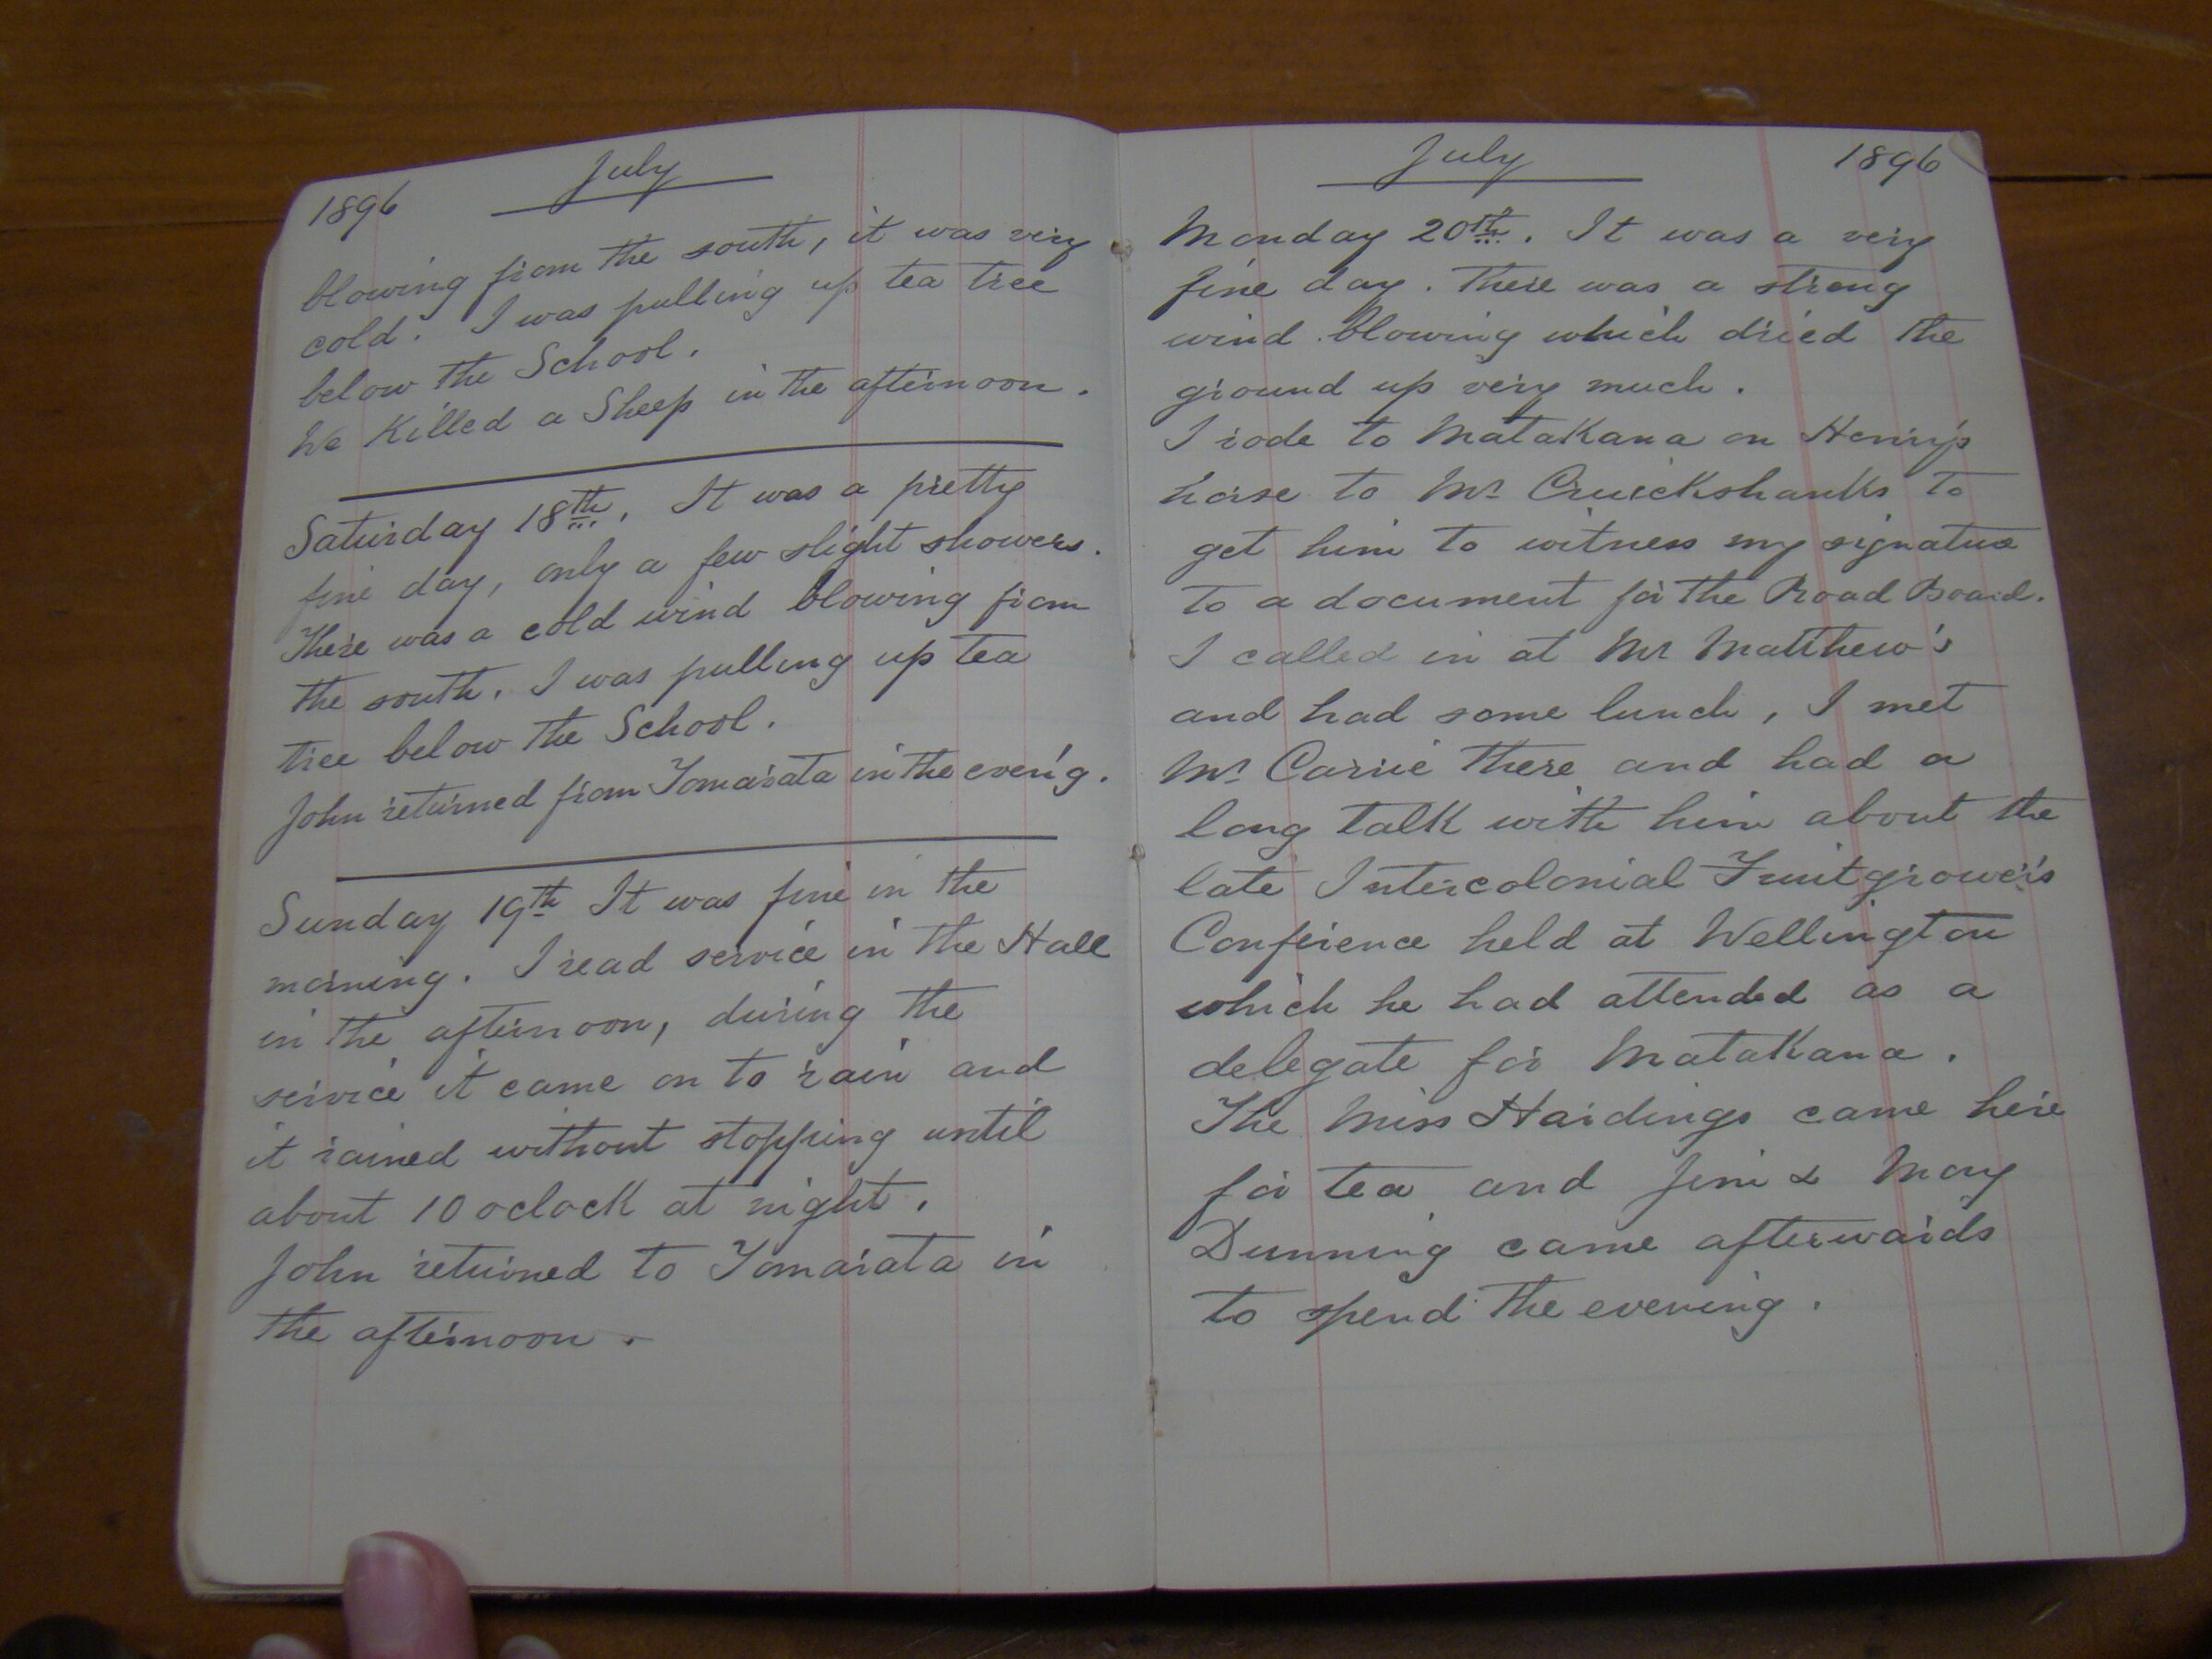 1896
July
blowing from the south, it was very
cold. I was pulling up tea tree
below the School.
We Killed a Sheep in the afternoon.
Saturday 18th. It was a pretty
fine day, only a few slight showers.
There was a cold wind blowing from
the south. I was pulling up tea
tree below the School.
John returned from Tomarata in the even'g.
Sunday 19th It was fine in the
morning. I read service in the Hall
in the afternoon, during the
service it came on to rain and
it rained without stopping until
about 10 oclock at night.
John returned to Tomarata in
the afternoon.
July
1896
Monday 20th. It was a very
fine day. There was a strong
wind blowing which dried the
ground up very much.
I rode to Matakana on Henry's
horse to Mr Cruickshanks to
get him to witness my signature
to a document for the Road Board.
I called in at Mr Matthew's
and had some lunch, I met
Mr Carrie there and had a
long talk with him about the
late Intercolonial Fruitgrower's
Conference held at Wellington
which he had attended as a
delegate for Matakana.
The Miss Hardings came here
for tea and Jim & May
Dunning came afterwards
to spend the evening.